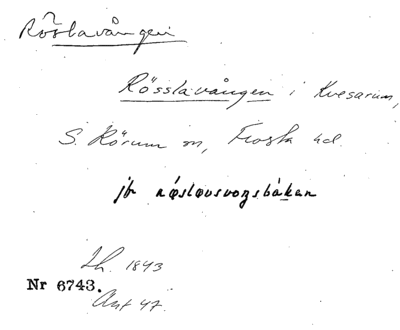 Röslavången
Rösslavången i Kvesarum,
S. Rörum sn, Frosta hd.
jfr
Lh. 1843
Nr 6743.
Ant 47.